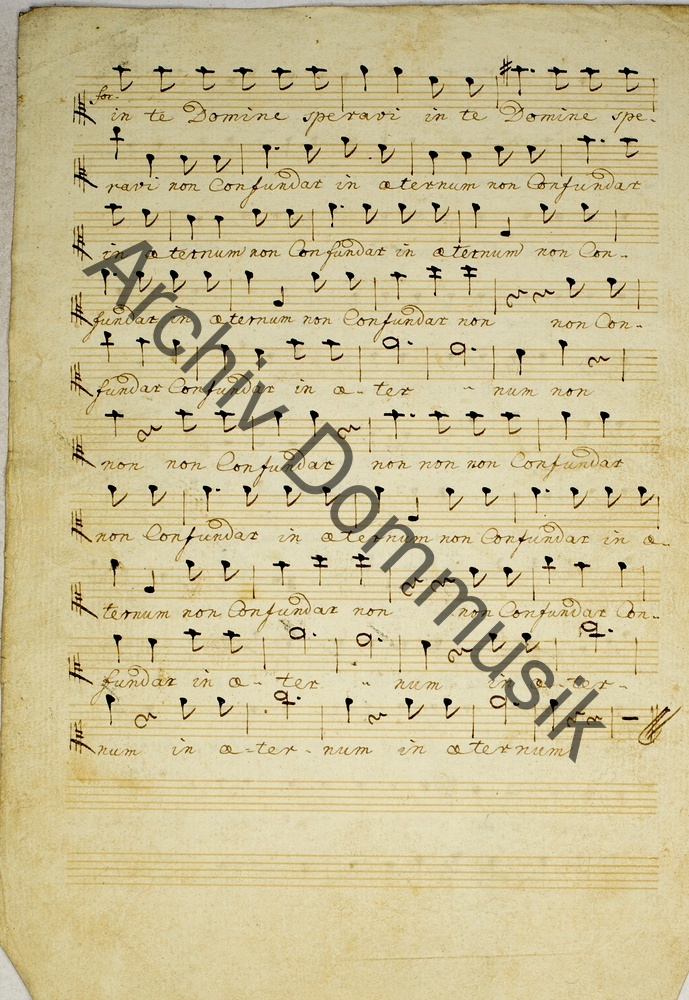 for.
in te Domine speravi in te Domine spe-
ravi non Confundar in æternum non Confundar
in æternum non Confundar in æternum non Con-
fundar in æternum non Confundar non non Con-
fundar Confundar in æ- ter - num non
non non Confundar non non non Confundar
non Confundar in æternum non Confundar in æ-
ternum non Confundar non non Confundar Con-
fundar in æ- ter - num in æ- ter-
num in æ-ter- num in æternum
Archiv Dommusik